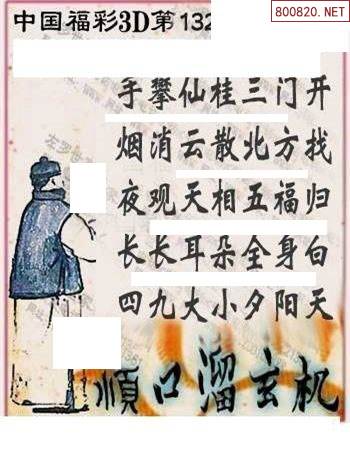 800820.NET
中国福彩3D第132
手攀仙桂三门开
烟消云散北方找
夜观天相五福归
长长耳朵全身白
四九大小夕阳天
顺口溜玄机